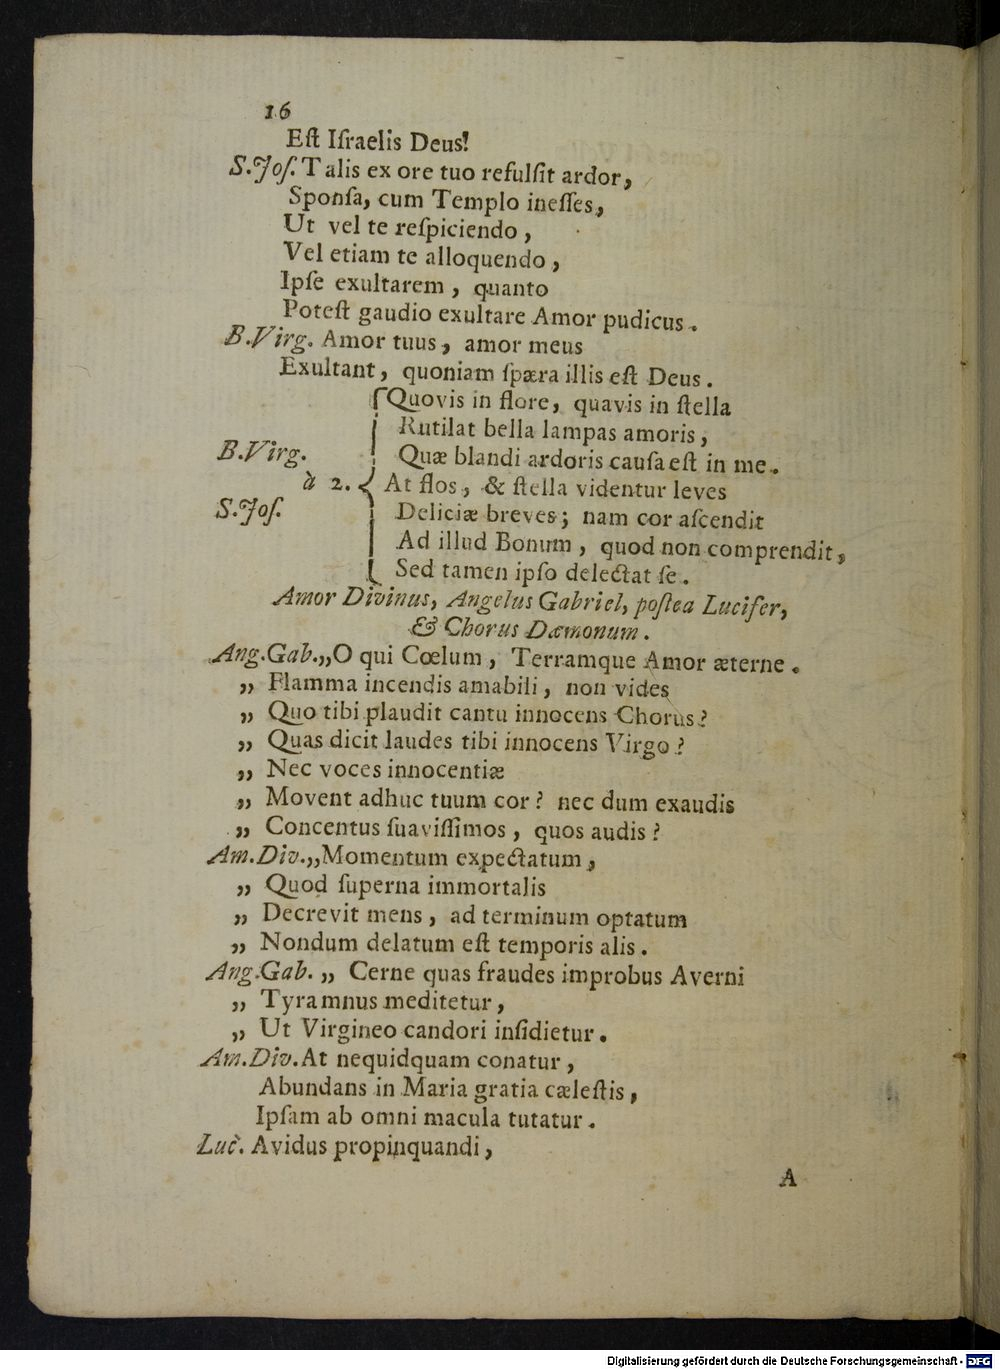 16
Eſt Iſraelis Deus!
S.Joſ. Talis ex ore tuo refulſit ardor,
Sponſa, cum Templo ineſſes,
Ut vel te reſpiciendo,
Vel etiam te alloquendo,
Ipſe exultarem, quanto
Poteſt gaudio exultare Amor pudicus.
B.Virg. Amor tuus, amor meus
Exultant, quoniam ſpæra illis eſt Deus.
Quovis in flore, quavis in ſtella
Rutilat bella lampas amoris,
B.Virg. Quæ blandi ardoris cauſa eſt in me.
à 2. At flos, & ſtella videntur leves
S.Joſ. Deliciæ breves; nam cor aſcendit
Ad illud Bonum, quod non comprendit,
Sed tamen ipſo delectat ſe.
Amor Divinus, Angelus Gabriel, poſtea Lucifer,
& Chorus Dæmonum.
Ang.Gab.„O qui Cœlum, Terramque Amor æterne.
„ Flamma incendis amabili, non vides
„ Quo tibi plaudit cantu innocens Chorus?
„ Quas dicit laudes tibi innocens Virgo?
„ Nec voces innocentiæ
„ Movent adhuc tuum cor? nec dum exaudis
„ Concentus ſuaviſſimos, quos audis?
Am.Div.„Momentum expectatum,
„ Quod ſuperna immortalis
„ Decrevit mens, ad terminum optatum
„ Nondum delatum eſt temporis alis.
Ang.Gab. „ Cerne quas fraudes improbus Averni
„ Tyramnus meditetur,
„ Ut Virgineo candori inſidietur.
Am.Div. At nequidquam conatur,
Abundans in Maria gratia cæleſtis,
Ipſam ab omni macula tutatur.
Luc. Avidus propinquandi,
A
Digitalisierung gefördert durch die Deutsche Forschungsgemeinschaft - DFG